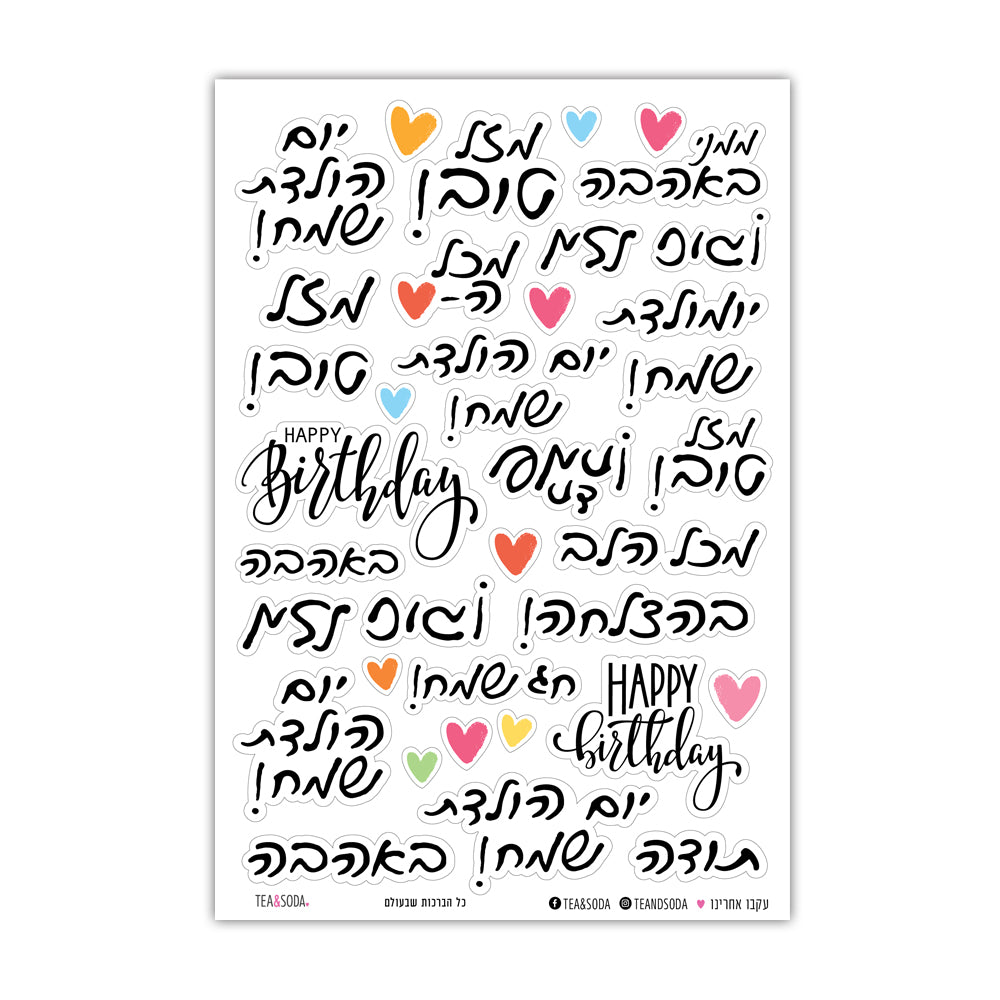 יום
הולדת
שמח!
מזל
טוב!
ממני
באהבה
מכל
ה-
מזל
טוב!
יומולדת
שמח!
יום הולדת
שמח!
HAPPY
Birthday
מזל
טוב!
באהבה
מכל הלב
בהצלחה!
יום
הולדת
שמח!
חג שמח!
HAPPY
birthday
יום הולדת
שמח!
באהבה
תודה
TEA&SODA
כל הברכות שבעולם
TEA&SODA
TEANDSODA
עקבו אחרינו